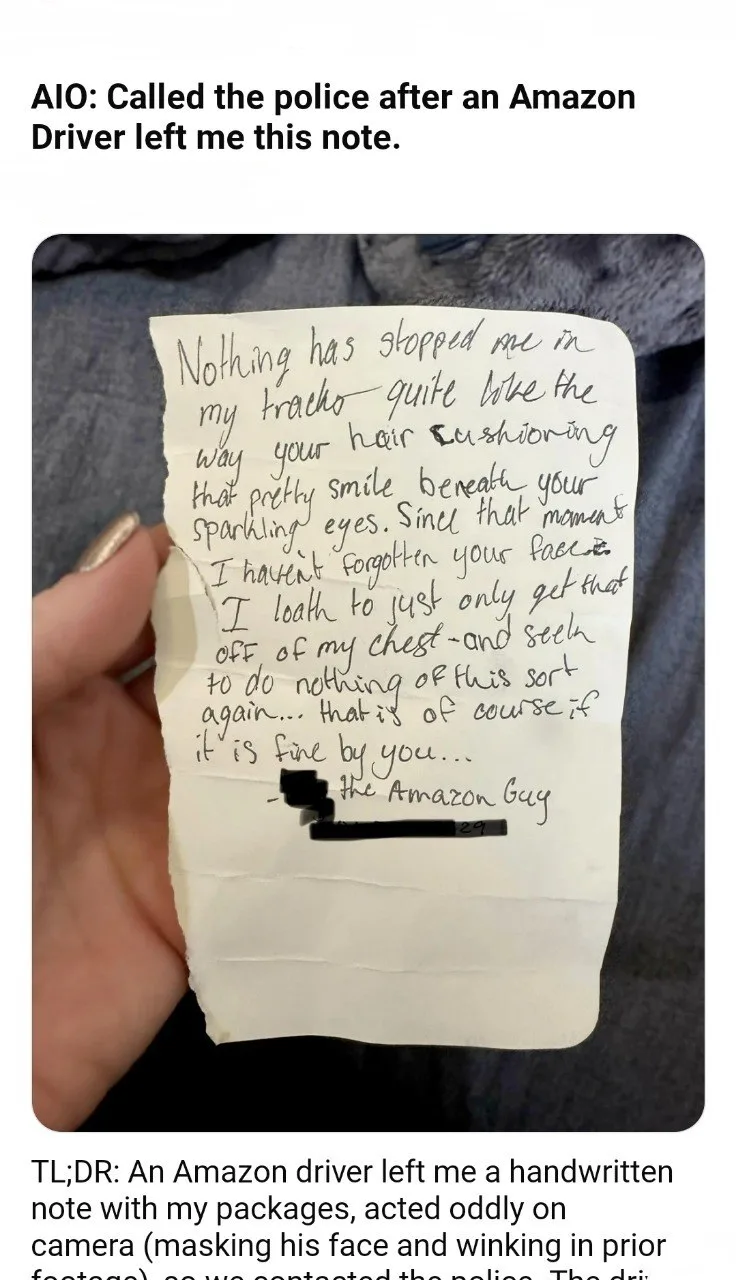 AIO: Called the police after an Amazon
Driver left me this note.
Nothing has stopped me in
my tracks quite like the
way your hair cushioning
that pretty smile beneath your
sparkling eyes. Since that moment
I haven't forgotten your face
I loath to just only get that
off of my chest - and seek
to do nothing of this sort
again... that is of course if
it is fine by you...
- the Amazon Guy
29
TL;DR: An Amazon driver left me a handwritten
note with my packages, acted oddly on
camera (masking his face and winking in prior
footage), so we contacted the police. The